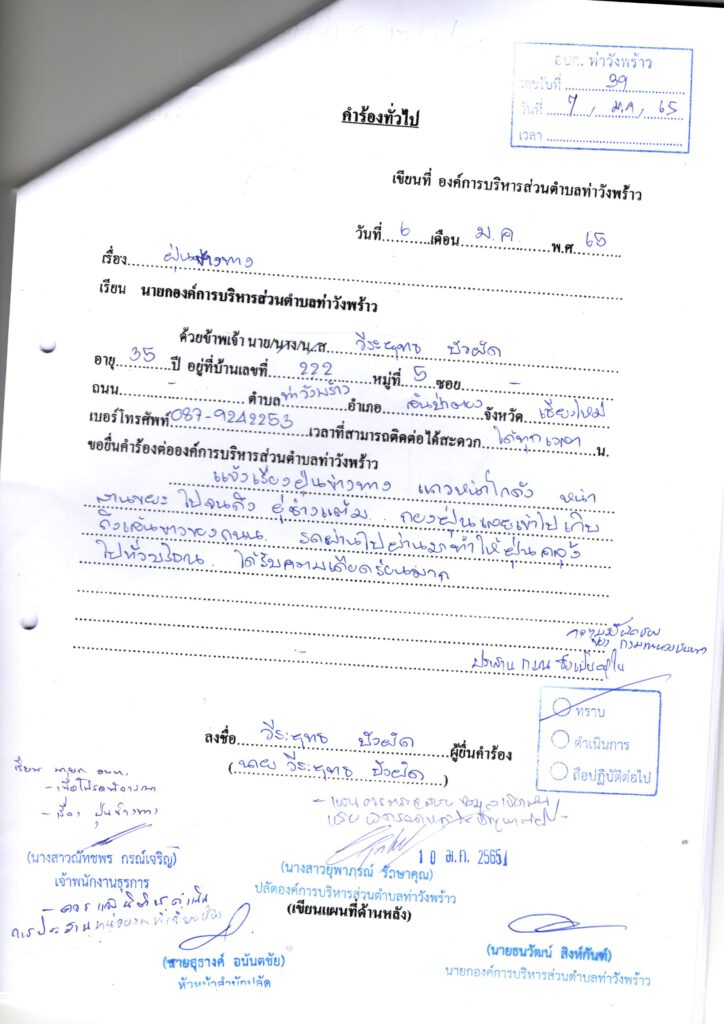 อบต. ท่าวังพร้าว
เลขรับที่ 39
วันที่ 7 / ม.ค / 65
เวลา
คำร้องทั่วไป
เขียนที่ องค์การบริหารส่วนตำบลท่าวังพร้าว
วันที่ 6 เดือน ม.ค. พ.ศ 65
เรื่อง ฝุ่นข้างทาง
เรียน นายกองค์การบริหารส่วนตำบลท่าวังพร้าว
ด้วยข้าพเจ้า นาย/นาง/น.ส วีระยุทธ บัวผัด
อายุ 35 ปี อยู่ที่บ้านเลขที่ 222 หมู่ที่ 5 ซอย -
ถนน - ตำบล ท่าวังพร้าว อำเภอ สันป่าตอง จังหวัด เชียงใหม่
เบอร์โทรศัพท์ 087-9242253 เวลาที่สามารถติดต่อได้สะดวก ได้ทุกเวลา น.
ขอยื่นคำร้องต่อองค์การบริหารส่วนตำบลท่าวังพร้าว
แจ้งเรื่องฝุ่นข้างทาง แถวหน้าโกดัง หน้า
ลานขยะ ไปจนถึง อู่ช่างแต้ม กองฝุ่นเลยเข้าไปเกือบ
ถึงเส้นขาวของถนน รถผ่านไปผ่านมาทำให้ฝุ่นคลุ้ง
ไปทั่วบริเวณ ได้รับความเดือดร้อนมาก
ทราบ
ดำเนินการ
ถือปฏิบัติต่อไป
ลงชื่อ วีระยุทธ บัวผัด ผู้ยื่นคำร้อง
(นาย วีระยุทธ บัวผัด)
เรียน นายก อบต.
- เพื่อโปรดพิจารณา
- เรื่อง ฝุ่นข้างทาง
(นางสาวณัทชพร กรณ์เจริญ)
เจ้าพนักงานธุรการ
10 ม.ค. 2565
(นางสาวยุพาภรณ์ รักษาคุณ)
ปลัดองค์การบริหารส่วนตำบลท่าวังพร้าว
(เขียนแผนที่ด้านหลัง)
(นายธุรางค์ อนันตชัย)
หัวหน้าสำนักปลัด
(นายธนวัฒน์ สิงห์กันฑ์)
นายกองค์การบริหารส่วนตำบลท่าวังพร้าว